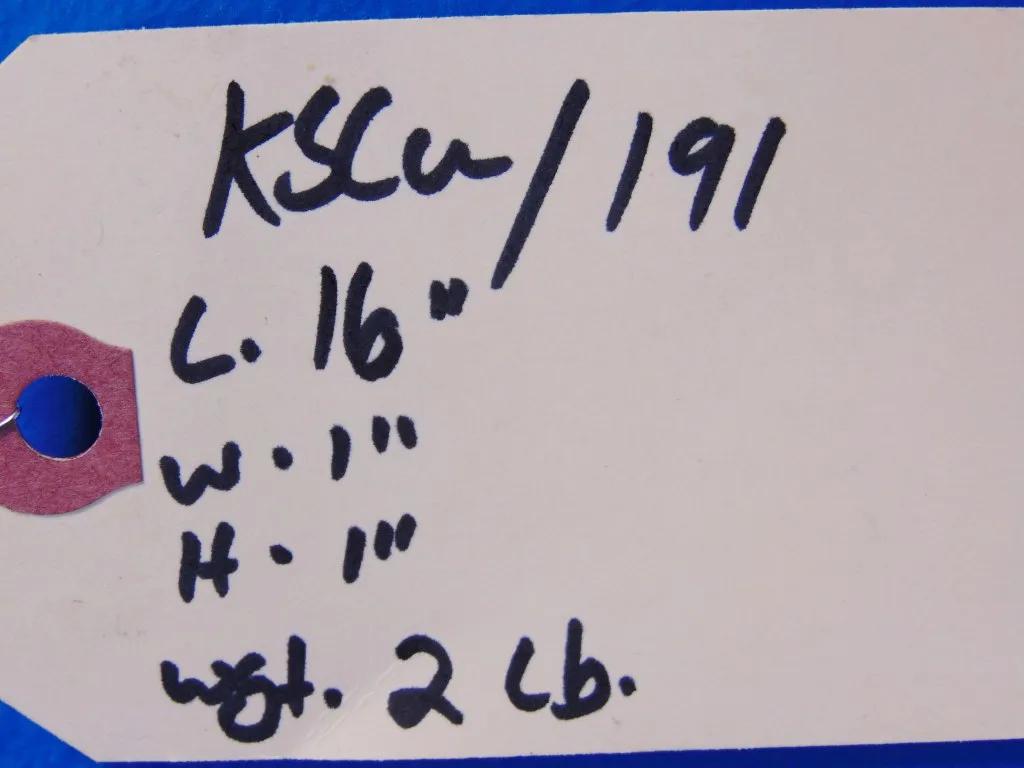 KSCu/191
L. 16"
W. 1"
H. 1"
wgt. 2 Lb.